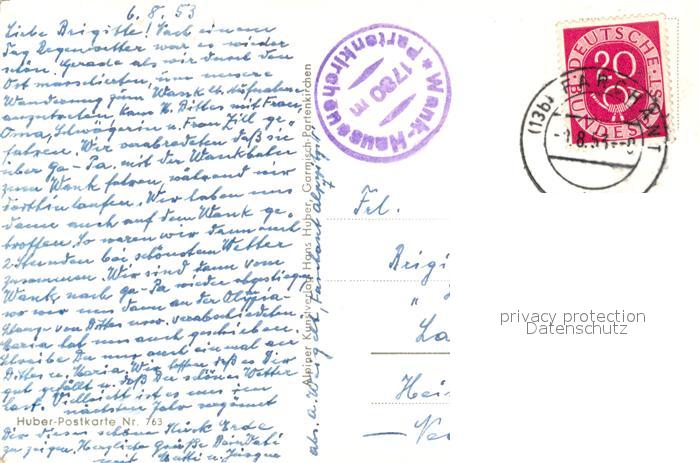 6.8.53
Liebe Brigitte! Nach einem
Tag Regenwetter war es wieder
schön. Gerade als wir durch den
Ort marschierten, um unsere
Wanderung zum Wank
anzutreten, kam H. Dittes mit Frau,
Oma, Schwägerin u. Frau
fahren. Wir verabredeten daß sie
über Ga-Pa. mit der Wankbahn
zum Wank fahren, während wir
dorthin laufen. Wir haben uns
dann auch auf dem Wank ge-
troffen. So waren wir dann auch
2 Stunden bei schönstem Wetter
zusammen. Wir sind dann vom
Wank nach Ga-Pa wieder abgestiegen
wo wir uns dann an der Olympia-
von Dittes usw. verabschiedeten.
Maria hat uns auch geschrieben.
Schreibe Du nur auch einmal an
Dittes u. Maria. Wir hoffen daß es Dir
gut gefällt u. daß Du schönes Wetter
hast. Vielleicht ist es uns im
nächsten Jahr vergönnt
Dir dieses schöne Stück Erde
zu zeigen. Herzliche Grüße Dein Vati
mit Mutti u. Jürgen
Huber-Postkarte Nr. 763
Alpiner Kunstverlag Hans Huber, Garmisch-Partenkirchen
Wank-Haus
1780 m
Partenkirchen
DEUTSCHE
BUNDESPOST
20
(13b) FARCHANT
8.53
Frl.
Brigi
"
La
Hei
privacy protection
Datenschutz